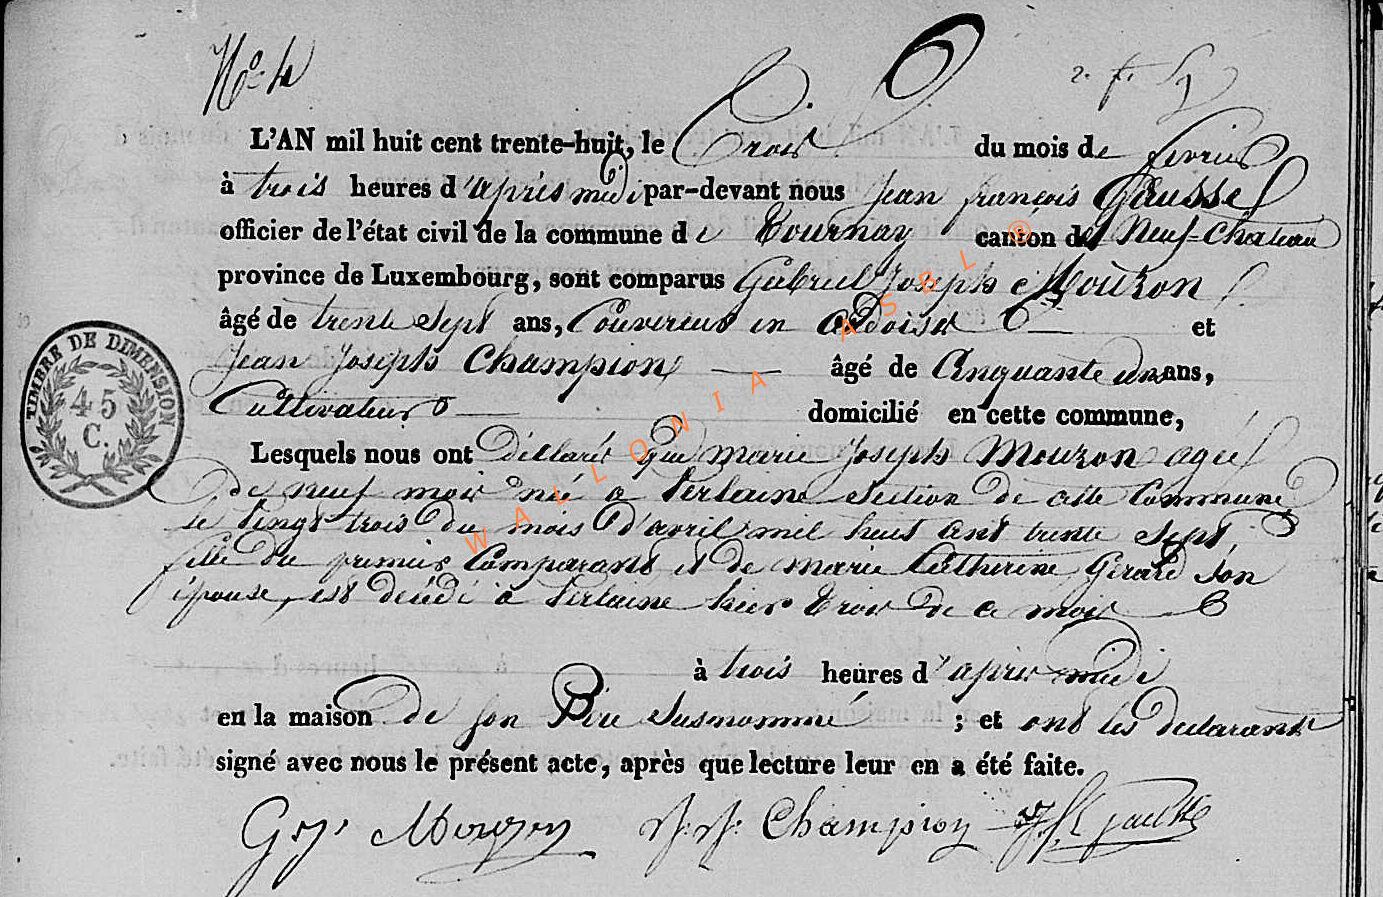 N° 4
6
L'AN mil huit cent trente-huit, le trois du mois de fevrier
à trois heures d'après midi par-devant nous Jean françois
officier de l'état civil de la commune de Tournay canton de Neuf-Chateau
province de Luxembourg, sont comparus Gabriel Joseph Mouzon
âgé de trente sept ans, Couvreur en Ardoises et
Jean Joseph Champion âgé de Cinquante un ans,
Cultivateur domicilié en cette commune,
Lesquels nous ont déclaré que marie Joseph Mouzon agée
de neuf mois née a Verlaine section de cette Commune
le vingt trois du mois d'avril mil huit cent trente sept,
fille du premier Comparant et de marie Catherine Girard son
épouse, est décédé a Verlaine hier trois de ce mois
à trois heures d'après midi
en la maison de son Père susnommé ; et ont les declarants
signé avec nous le présent acte, après que lecture leur en a été faite.
G. J. Mouzon J. J. Champion
TIMBRE DE DIMENSION
45
C.
WALLONIA ASBL ©